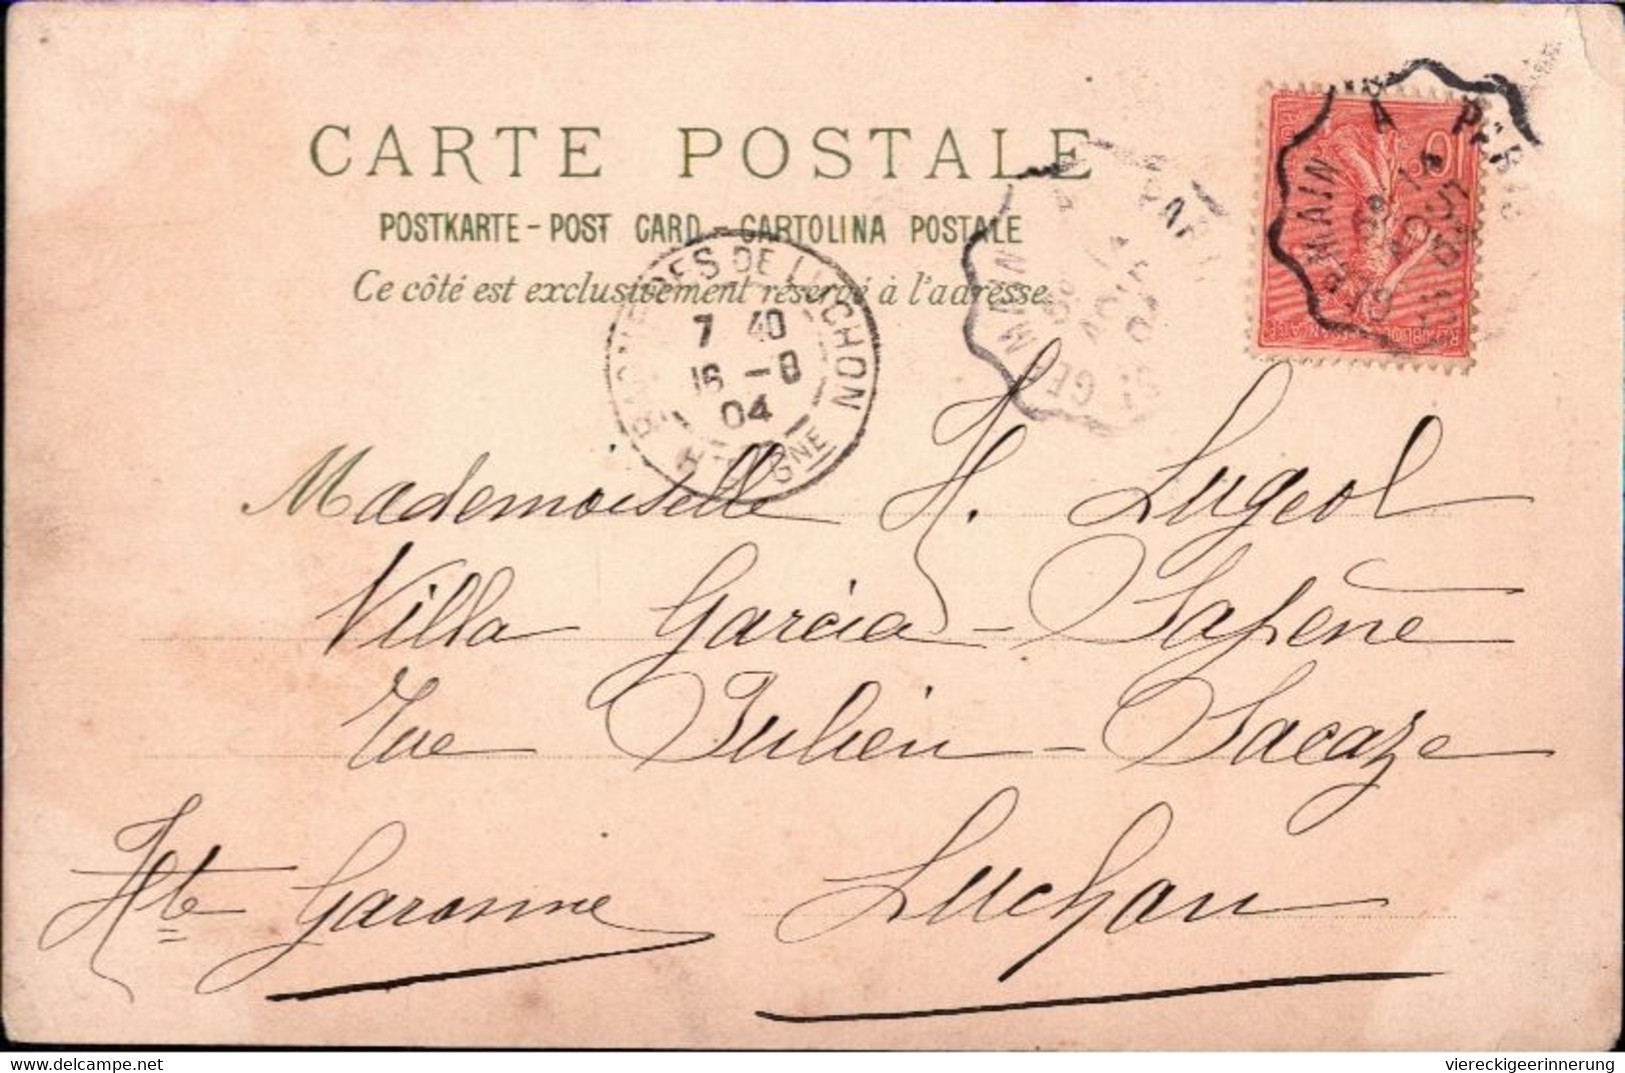 CARTE POSTALE
POSTKARTE - POST CARD - CARTOLINA POSTALE
Ce côté est exclusivement réservé à l'adresse
BAGNERES DE LUCHON
7 40
16 - 8
04
GNE
GERMAIN A PARIS
14 AOUT 04
GERMAIN A PARIS
14 AOUT 04
10
Mademoiselle H. Lugeol
Villa Garcia - Sapène
rue Julien - Sacaze
Luchon
Hte Garonne
Delcampe.net
viereckigeerinnerung